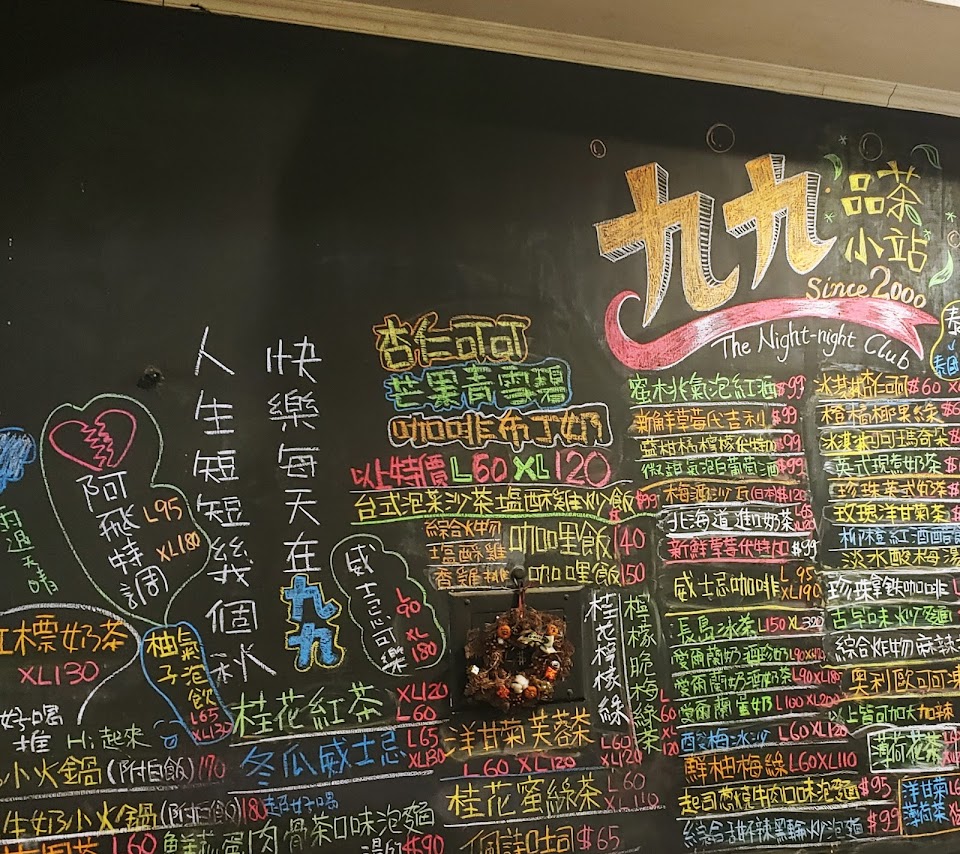 九九
品茶
小站
Since 2000
The Night-night Club
人生短短幾個秋
快樂每天在九九
杏仁可可
芒果青雪碧
咖啡布丁奶
以上特價 L60 XL120
台式泡菜沙茶塩酥雞炒飯 $99
綜合炸物
塩酥雞
咖哩飯 140
香雞排 咖哩飯 150
阿飛特調
L95
XL180
雨過天晴
威士忌可樂
L90 XL180
紅標奶茶
XL130
柚子氣泡飲
L65
XL130
好喝
推 Hi起來
小火鍋(附白飯)170
牛奶小火鍋(附白飯)180 超好喝
L60
鮮菇蛋肉骨茶口味泡麵
$90
桂花紅茶 XL120 L60
冬瓜威士忌 L65 XL130
洋甘菊芙蓉茶
L60 L120
L60 XL120
桂花蜜綠茶 L60
吐司 $65
桂花檸檬綠
檸檬脆梅綠茶
L60 XL120
氣泡紅酒 $99
新鮮草莓代吉利 $99
$99
$99
梅酒沙瓦(日本)$120
北海道進口奶茶
新鮮草莓伏特加 $99
威士忌咖啡 L95 XL190
長島冰茶 L150 XL320
愛爾蘭奶酒珍奶 L90
愛爾蘭奶酒奶茶 L90 XL185
愛爾蘭蜜奶 L100 XL200
西谷梅冰沙 L60 XL120
鮮柚梅綠 L60 XL110
起司蔥燒牛肉口味泡麵 $95
綜合甜不辣黑輪炒泡麵 $99
冰淇淋杏仁可可 $60
橙橘椰果綠
冰淇淋可可瑪奇朵
英式現煮奶茶
珍珠英式奶茶
玫瑰洋甘菊茶
柳橙紅酒醋
淡水酸梅湯
珍珠拿鐵咖啡
古早味炒麵
綜合炸物麻辣
奧利歐可可凍
以上皆可加大加辣
薄荷花茶
洋甘菊
薄荷茶